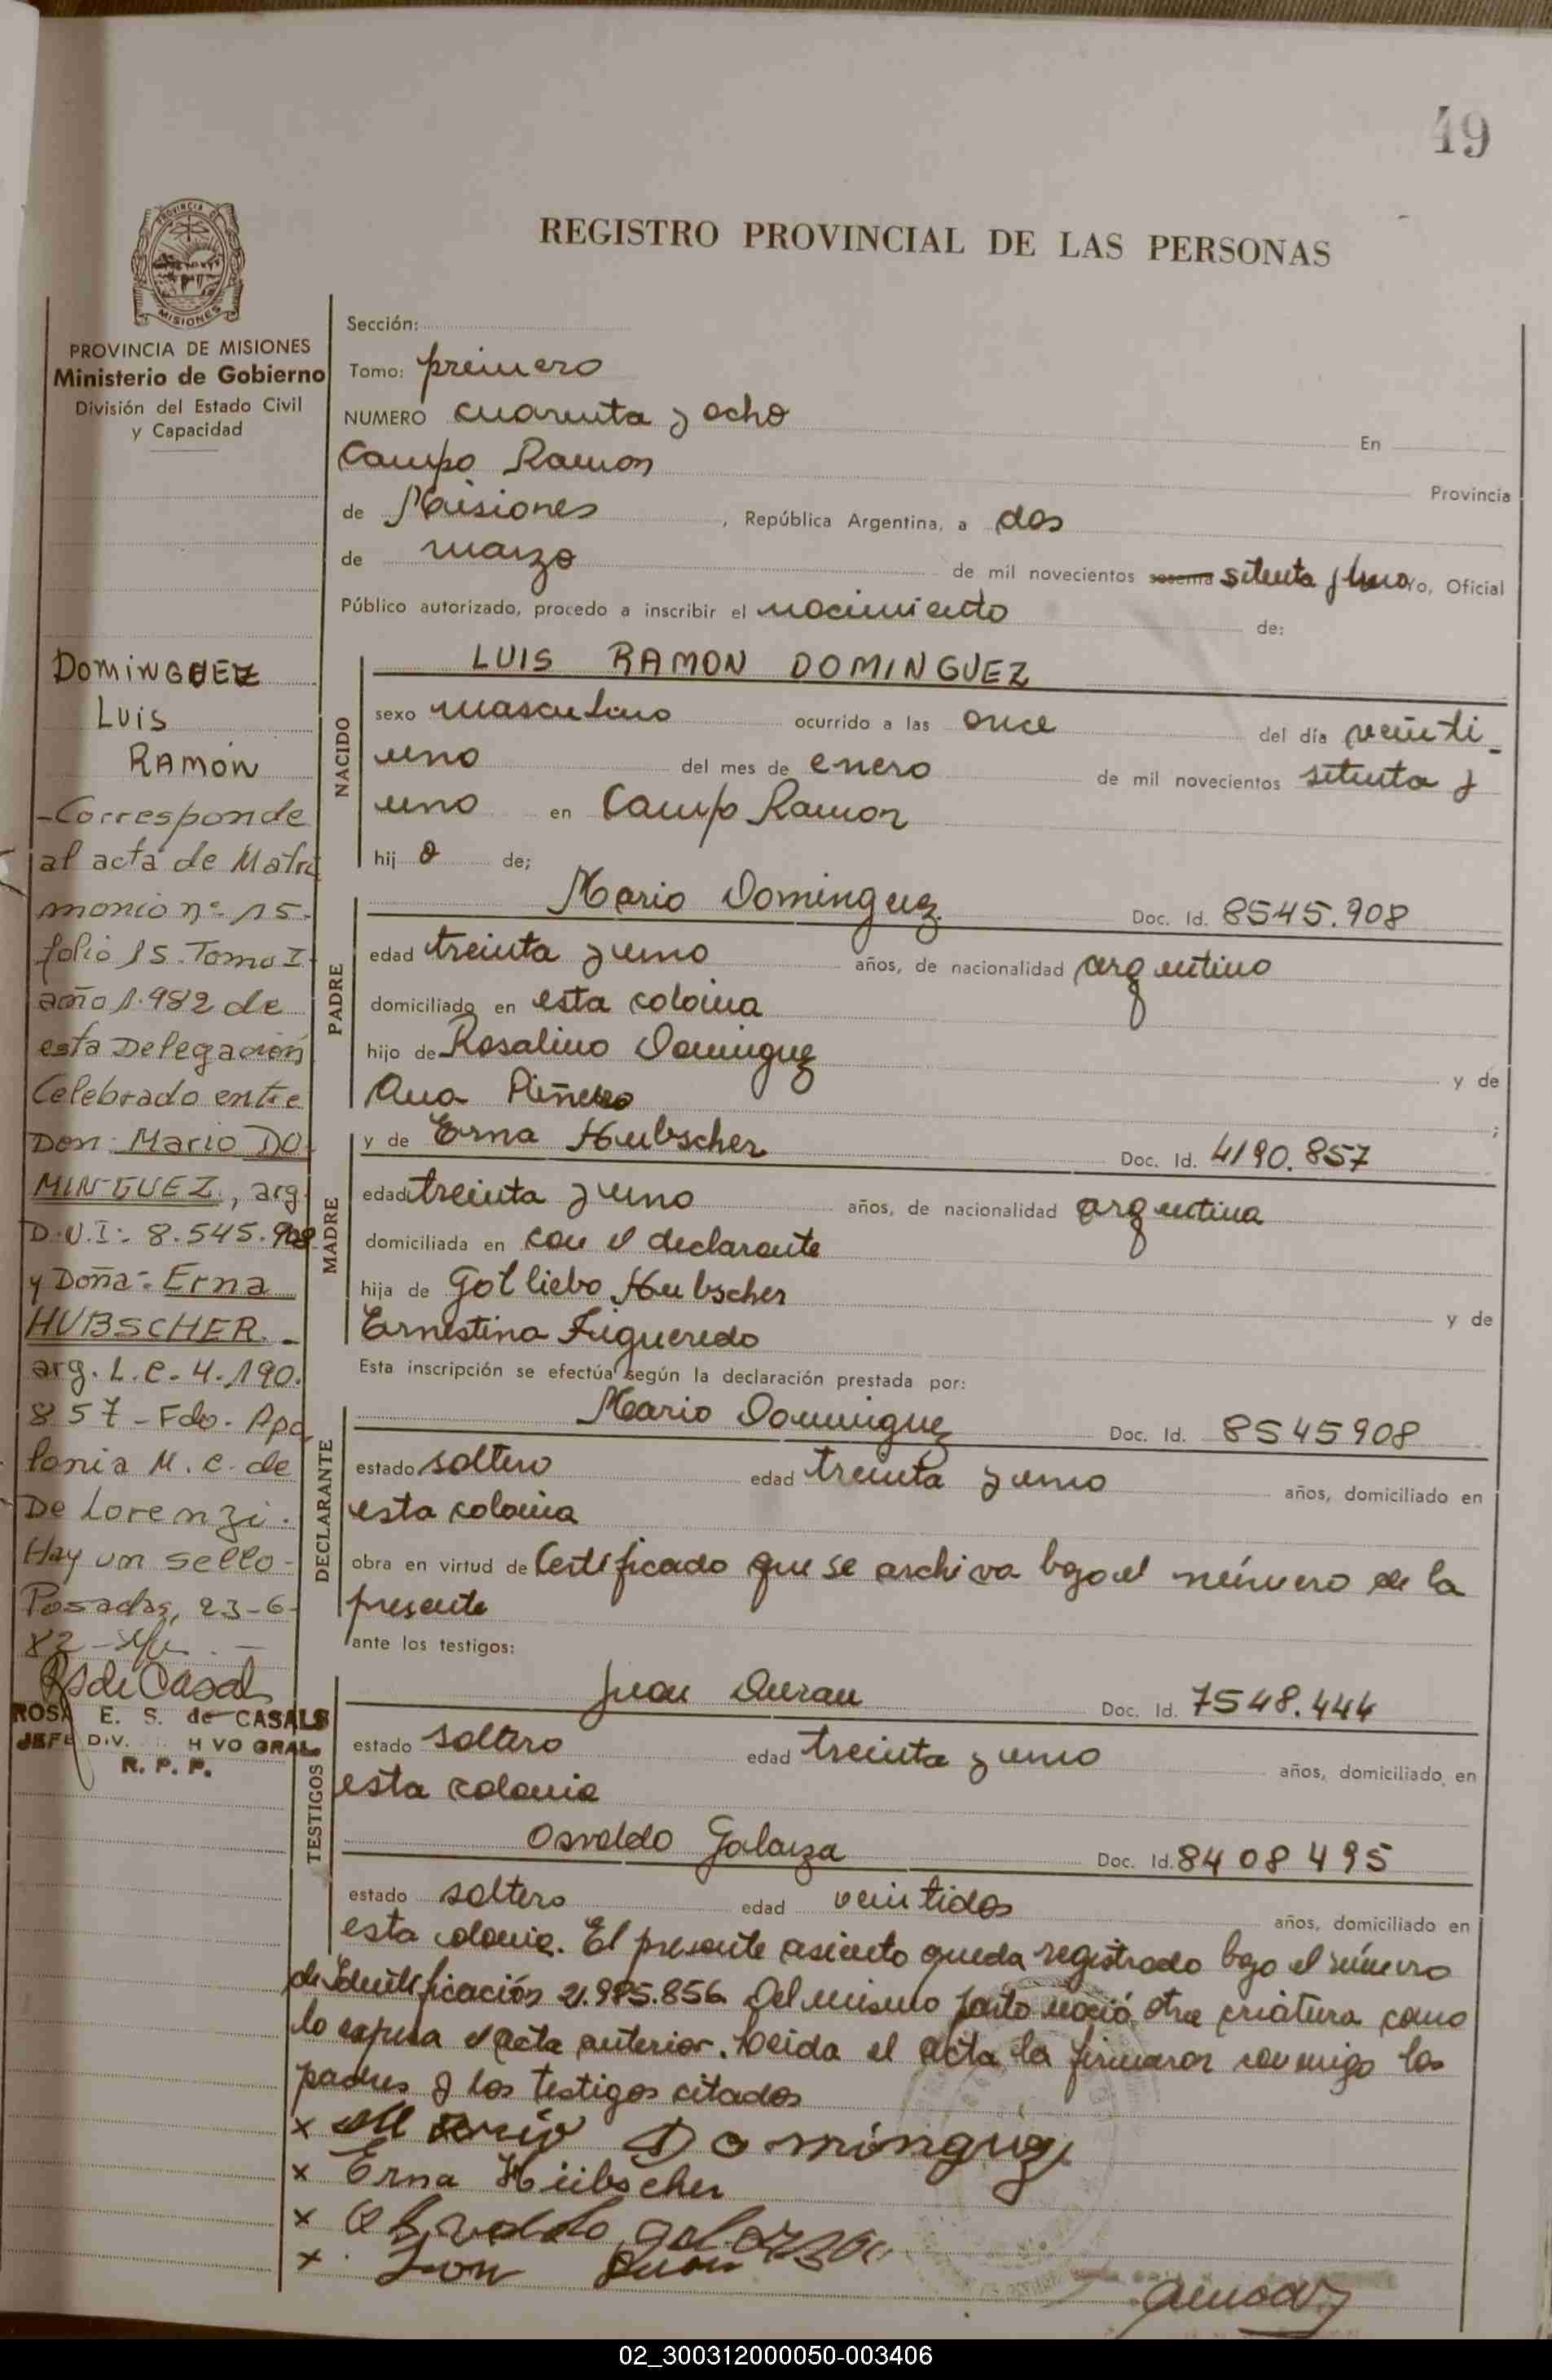 49
PROVINCIA DE
MISIONES
REGISTRO PROVINCIAL DE LAS PERSONAS
PROVINCIA DE MISIONES
Ministerio de Gobierno
División del Estado Civil
y Capacidad
Sección:
Tomo: primero
NUMERO cuarenta y ocho En
Campo Ramon Provincia
de Misiones , República Argentina, a dos
de marzo de mil novecientos sesenta setenta y uno Yo, Oficial
Público autorizado, procedo a inscribir el nacimiento de:
DOMINGUEZ
LUIS
RAMON
-Corresponde
al acta de Matri
monio nº 15.
folio 15. Tomo I
año 1.982 de
esta Delegación
Celebrado entre
Don: Mario DO-
MINGUEZ, arg.
D.N.I: 8.545.908
y Doña: Erna
HUBSCHER.-
arg. L.C. 4.190.
857 - Fdo. Apo
lonia M. C. de
De Lorenzi.
Hay un sello-
Posadas, 23-6-
82
RSdeCasals
ROSA E. S. de CASALS
JEFE DIV. H VO GRAL.
R. P. P.
NACIDO
LUIS RAMON DOMINGUEZ
sexo masculino ocurrido a las once del día veinti-
uno del mes de enero de mil novecientos setenta y
uno en Campo Ramon
hij o de;
PADRE
Mario Dominguez Doc. Id. 8545.908
edad treinta y uno años, de nacionalidad argentino
domiciliado en esta colonia
hijo de Rosalino Dominguez y de
Ana Piñeiro ;
MADRE
y de Erna Hubscher Doc. Id. 4190.857
edad treinta y uno años, de nacionalidad argentina
domiciliada en con el declarante
hija de Gotliebo Hubscher y de
Ernestina Figueredo
Esta inscripción se efectúa según la declaración prestada por:
DECLARANTE
Mario Dominguez Doc. Id. 8545908
estado soltero edad treinta y uno años, domiciliado en
esta colonia
obra en virtud de Certificado que se archiva bajo el número de la
presente
ante los testigos:
TESTIGOS
Juan Duran Doc. Id. 7548.444
estado soltero edad treinta y uno años, domiciliado en
esta colonia
Osvaldo Galarza Doc. Id. 8408495
estado soltero edad veintidos años, domiciliado en
esta colonia. El presente asiento queda registrado bajo el número
de Identificación 21.985.856 Del mismo parto nació otra criatura como
lo expresa el acta anterior. Leida el acta la firmaron conmigo los
padres y los testigos citados
x Mario Dominguez
x Erna Hübscher
x Osvaldo galarza
x Juan Duran
02_300312000050-003406